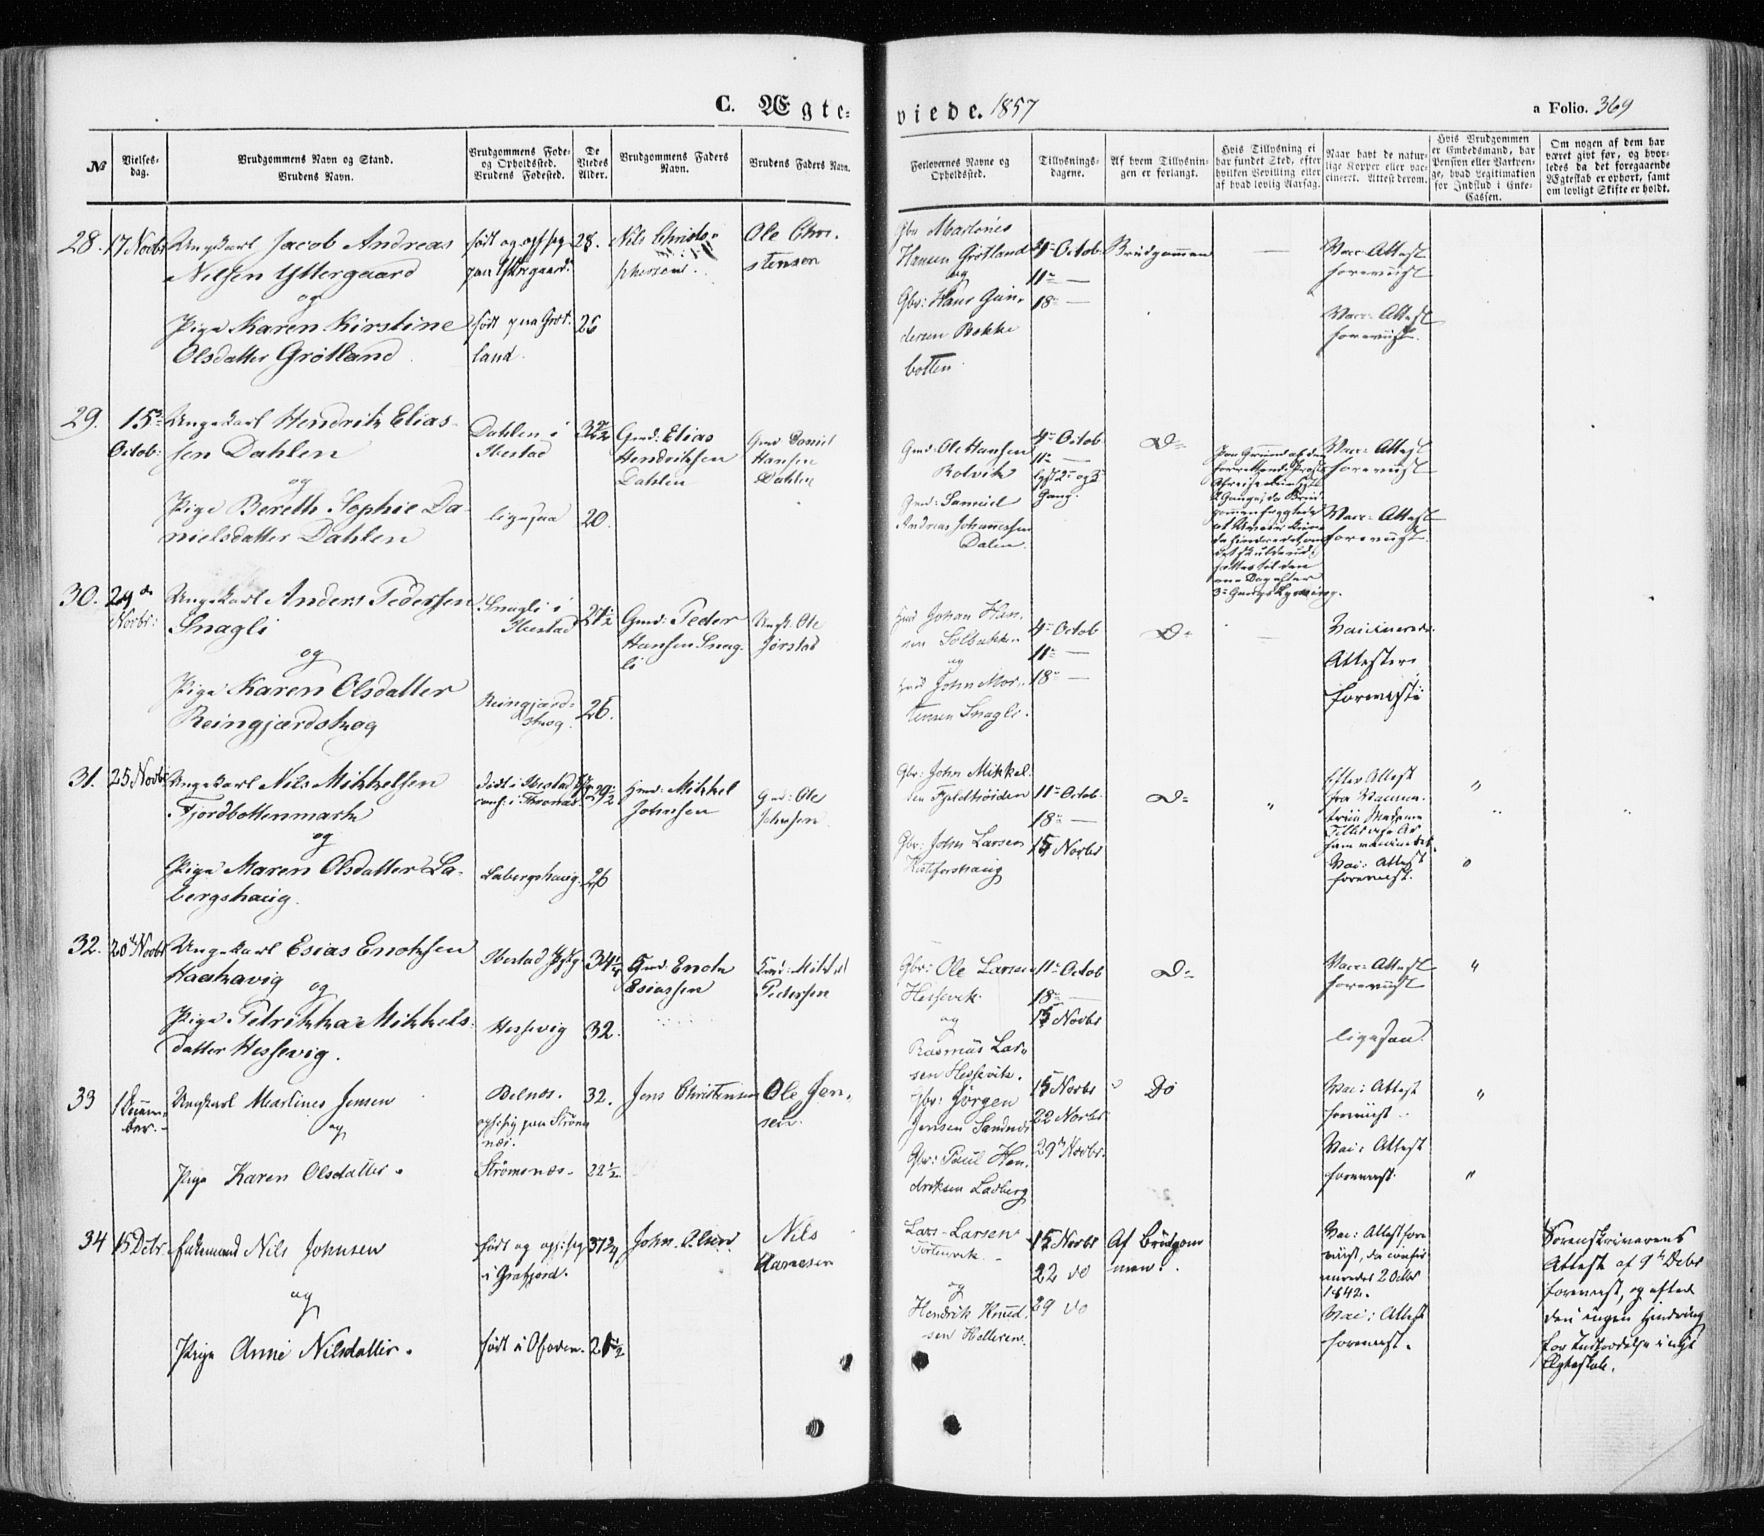 C. Ægte-
viede. 1857
a Folio. 369
№
Vielses-
dag.
Brudgommens Navn og Stand.
Brudens Navn.
Brudgommens Føde-
og Opholdssted.
Brudens Fødested.
De
Viedes
Alder.
Brudgommens Faders
Navn.
Brudens Faders Navn.
Forlovernes Navne og
Opholdssted.
Tillysnings-
dagene.
Af hvem Tillysnin-
gen er forlangt.
Hvis Tillysning ei
har fundet Sted, efter
hvilken Bevilling eller
af hvad lovlig Aarsag.
Naar havt de natur-
lige Kopper eller vac-
cineret. Attest derom.
Hvis Brudgommen
er Embedsmand, har
Pension eller Vartpen-
ge, hvad Legitimation
for Indskud i Enke-
Cassen.
Om nogen af dem har
været gift før, og hvor-
ledes da det foregaaende
Ægteskab er ophørt, samt
om lovligt Skifte er holdt.
28. 17 Novbr
Ungekarl Jacob Andreas
Nilsen Yttergaard
og
Pige Karen Kirstine
Olsdatter Grøtland
født og
paa Yttregaard
født paa Grøt-
land.
28.
26
Nils Christo-
phersen.
Ole Chri-
stensen
Gbr Martinus
Hansen Grøtland
og
Gbr: Hans Gun-
dersen Bakke
botten
4de Octob
11te —
18de —
Brudgommen
—
Vacc: Attest
foreviist
Vacc: Attest
foreviist.
29. 15de
Octob:
Ungekarl Hendrik Elias-
sen Dahlen
og
Pige Bereth Sophie Da-
nielsdatter Dahlen
Dahlen i
Ibestad
ligesaa
20.
Gmd: Elias
Hendriksen
Dahlen
Gmd Daniel
Hansen
Dahlen
Gmd: Ole Hansen
Rolvik
Gmd: Samuel
Andreas Johannessen
Dalen.
4de Octob
11te —
lyst 2den og 3die
Gang.
Do
Paa Grund af den
Vacc: Attest
foreviist
Vacc: Attest
foreviist.
30. 24de
Novbr:
Ungekarl Anders Pedersen
Snagli
og
Pige Karen Olsdatter
Reingjærdskog
Snagli i
Ibestad
Reingjærd-
skog.
26.
Gmd: Peder
Hansen Snag-
li
Ungk. Ole
Jørstad
Johan Han-
sen Solbakken
og
John Mor-
tensen Snagli.
4de Octob
11te —
18de —
Do
—
Vaccineres.
Attester
foreviste
31. 25 Novbr
Ungekarl Nils Mikkelsen
Fjordbottenmark
og
Pige Maren Olsdatter La-
bergshaug.
Født i Ibestad
conf: i Tromsø.
Labergshaug.
29½
26
Gmd: Mikkel
Johnsen
Gmd: Ole
Johnsen.
Gbr: John Mikkel-
sen Fjeldkøiden
Gbr: John Larsen
Kistefoshaug
11te Octob.
18de —
15 Novbr
Do
"
Efter Attest
fra Vaccina-
trice Madame
Vac: Attest
foreviist.
"
"
32. 20de Novbr
Ungekarl Esias Enoksen
Haakavig
og
Pige Petrikka Mikkels-
datter Hessevig.
Ibestad
Hessevig
34
32.
Gmd: Enok
Esiassen
Mikkel
Pedersen
Gbr: Ole Larsen
Hessevik.
og
Rasmus Lar-
sen Hessevik.
11te Octob
18de —
15 Novbr
Do
Vacc: Attest
foreviist
ligesaa.
"
33 1 Decem-
ber.
Ungkarl Martines Jensen
og
Pige Karen Olsdatter.
Belnes.
paa Strøms-
næs.
Strømsnæs.
32.
22½
Jens Christensen
Ole Jen-
sen.
Gbr: Jørgen
Jensen Sandnes
Gbr: Paul Hen-
driksen Ladberg
15 Novbr
22 Novbr
29 Novbr.
Do
Vac: Attest
foreviist.
Vac: Attest
foreviist.
"
"
34 15 Decbr
Enkemand Nils Johnsen
og
Pige Anne Nilsdatter.
født og
i Gratfjord.
født i Ofoden.
John Olsen
Nils
Aanesen
Lars Larsen
og
Hendrik Knud-
sen
15 Novbr
22 do
29 do
Af Brudgom-
men.
Vac: Attest fore-
viist,
1842.
Vac: Attest
foreviist.
Sorenskriverens
Attest af 9de Decbr
foreviist, og efter
den ingen Hindring
for Indtrædelse i nyt
Ægteskab.